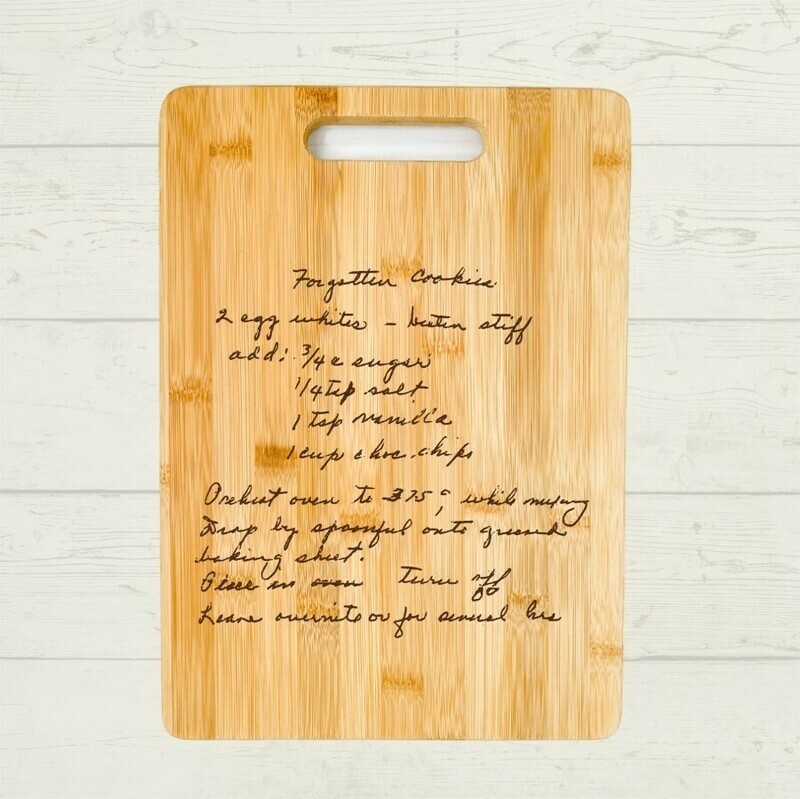 Forgotten Cookies
2 egg whites - beaten stiff
add: 3/4 c sugar
1/4 tsp salt
1 tsp vanilla
1 cup choc. chips
Preheat oven to 375° while mixing
Drop by spoonful onto greased
baking sheet.
Place in oven turn off
Leave overnite or for several hrs